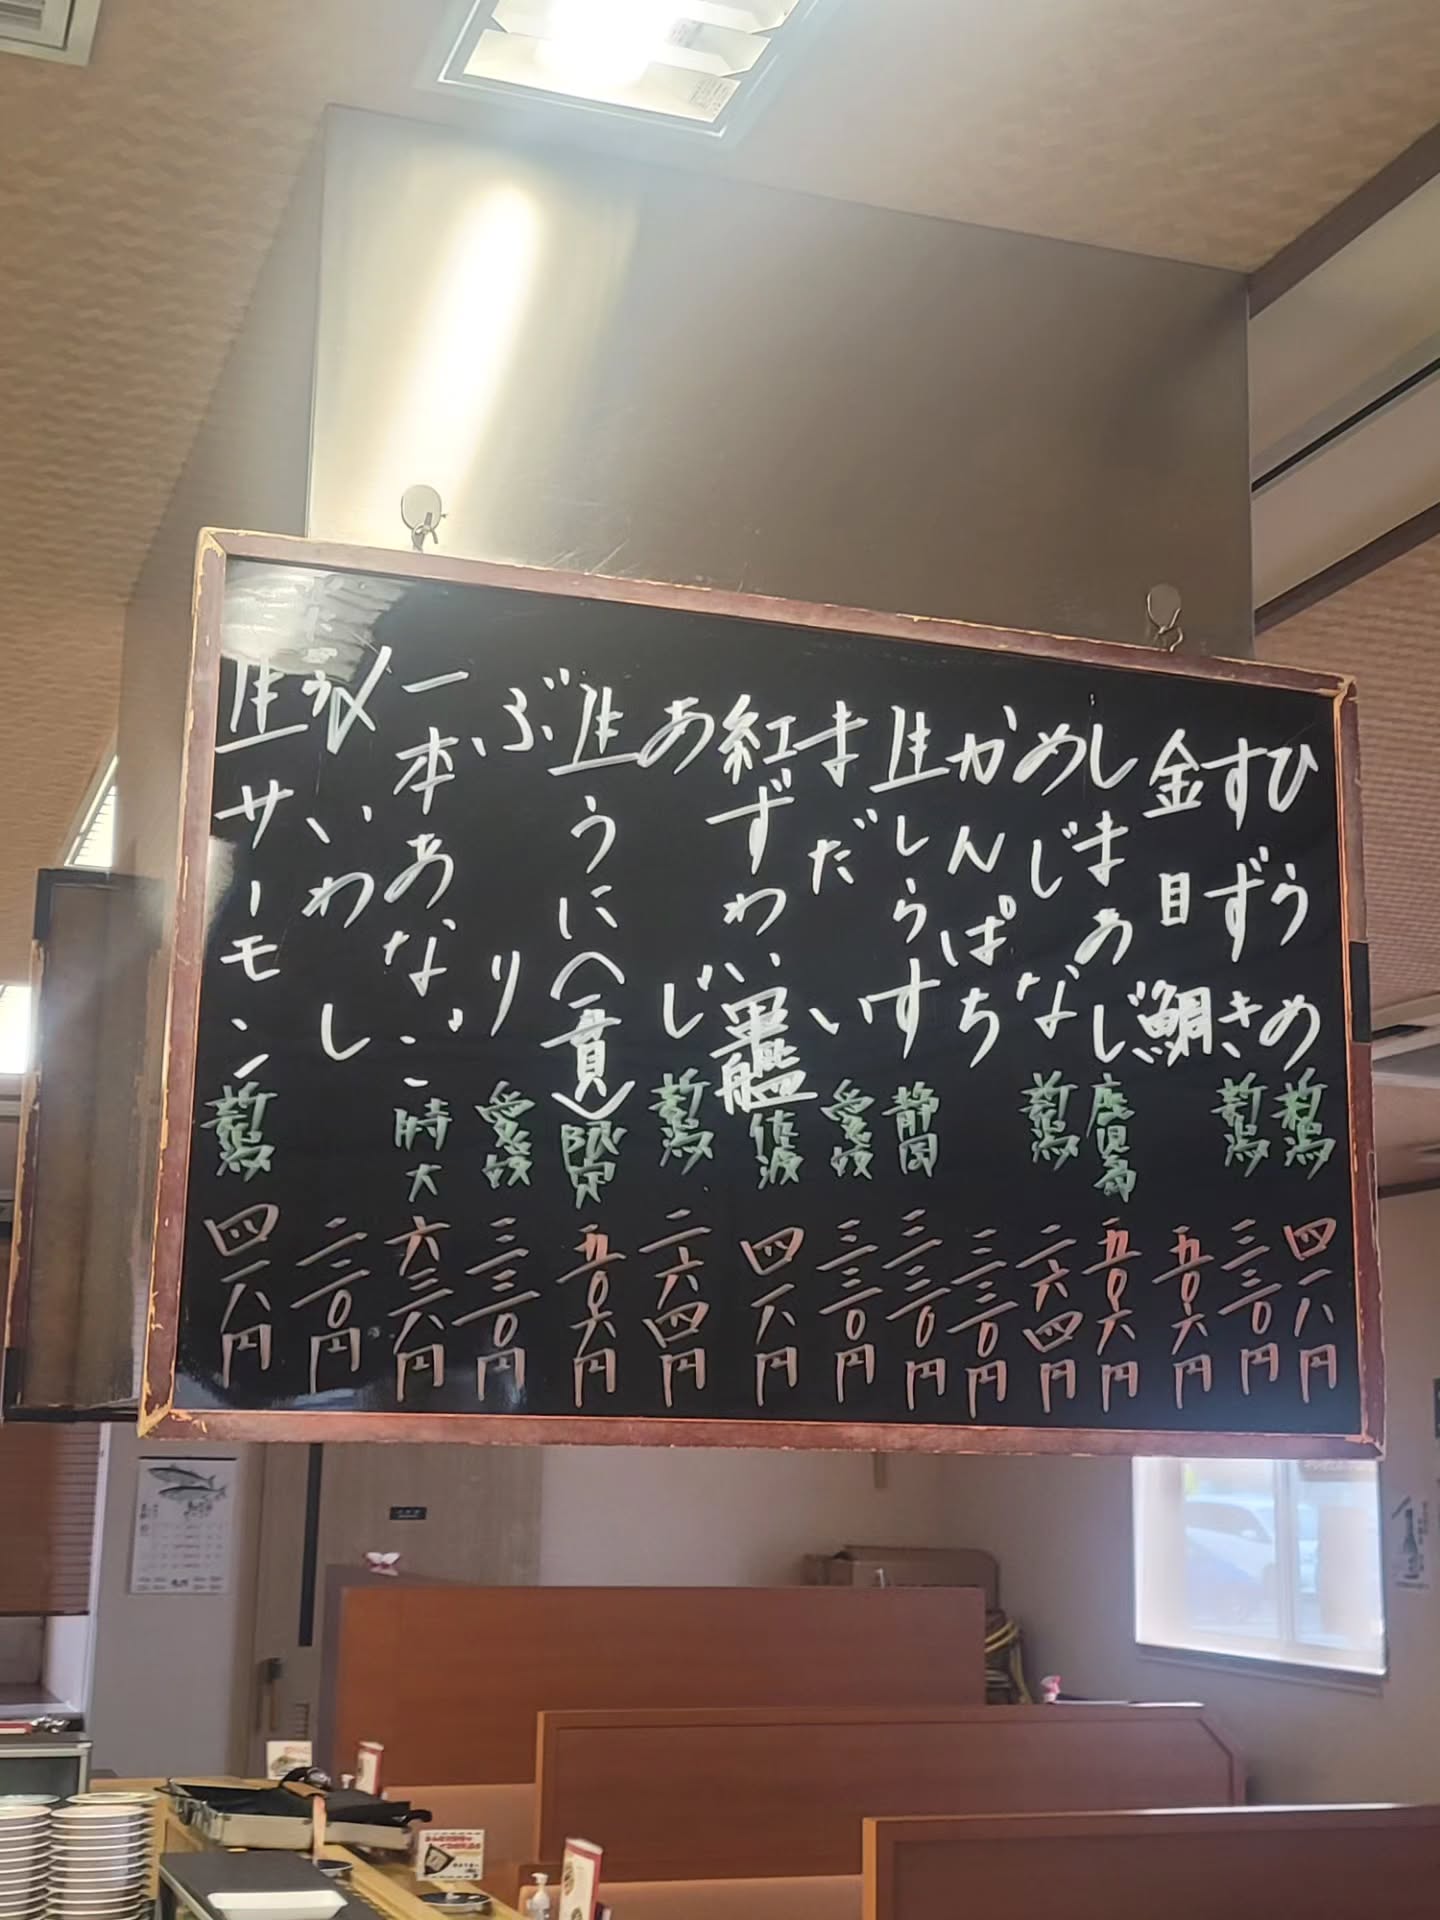 ひらめ 新潟 四一八円
すずき 新潟 三三〇円
金目鯛 五〇六円
しまあじ 鹿児島 五〇六円
めじな 新潟 二六四円
かんぱち 三三〇円
生しらす 静岡 三三〇円
まだい 愛媛 三三〇円
紅ずわい軍艦 佐渡 四一八円
あじ 新潟 二六四円
生うに(一貫) 限定 五〇六円
ぶり 愛媛 三三〇円
一本あなご 特大 六三八円
いわし 二二〇円
生サーモン 新潟 四一八円